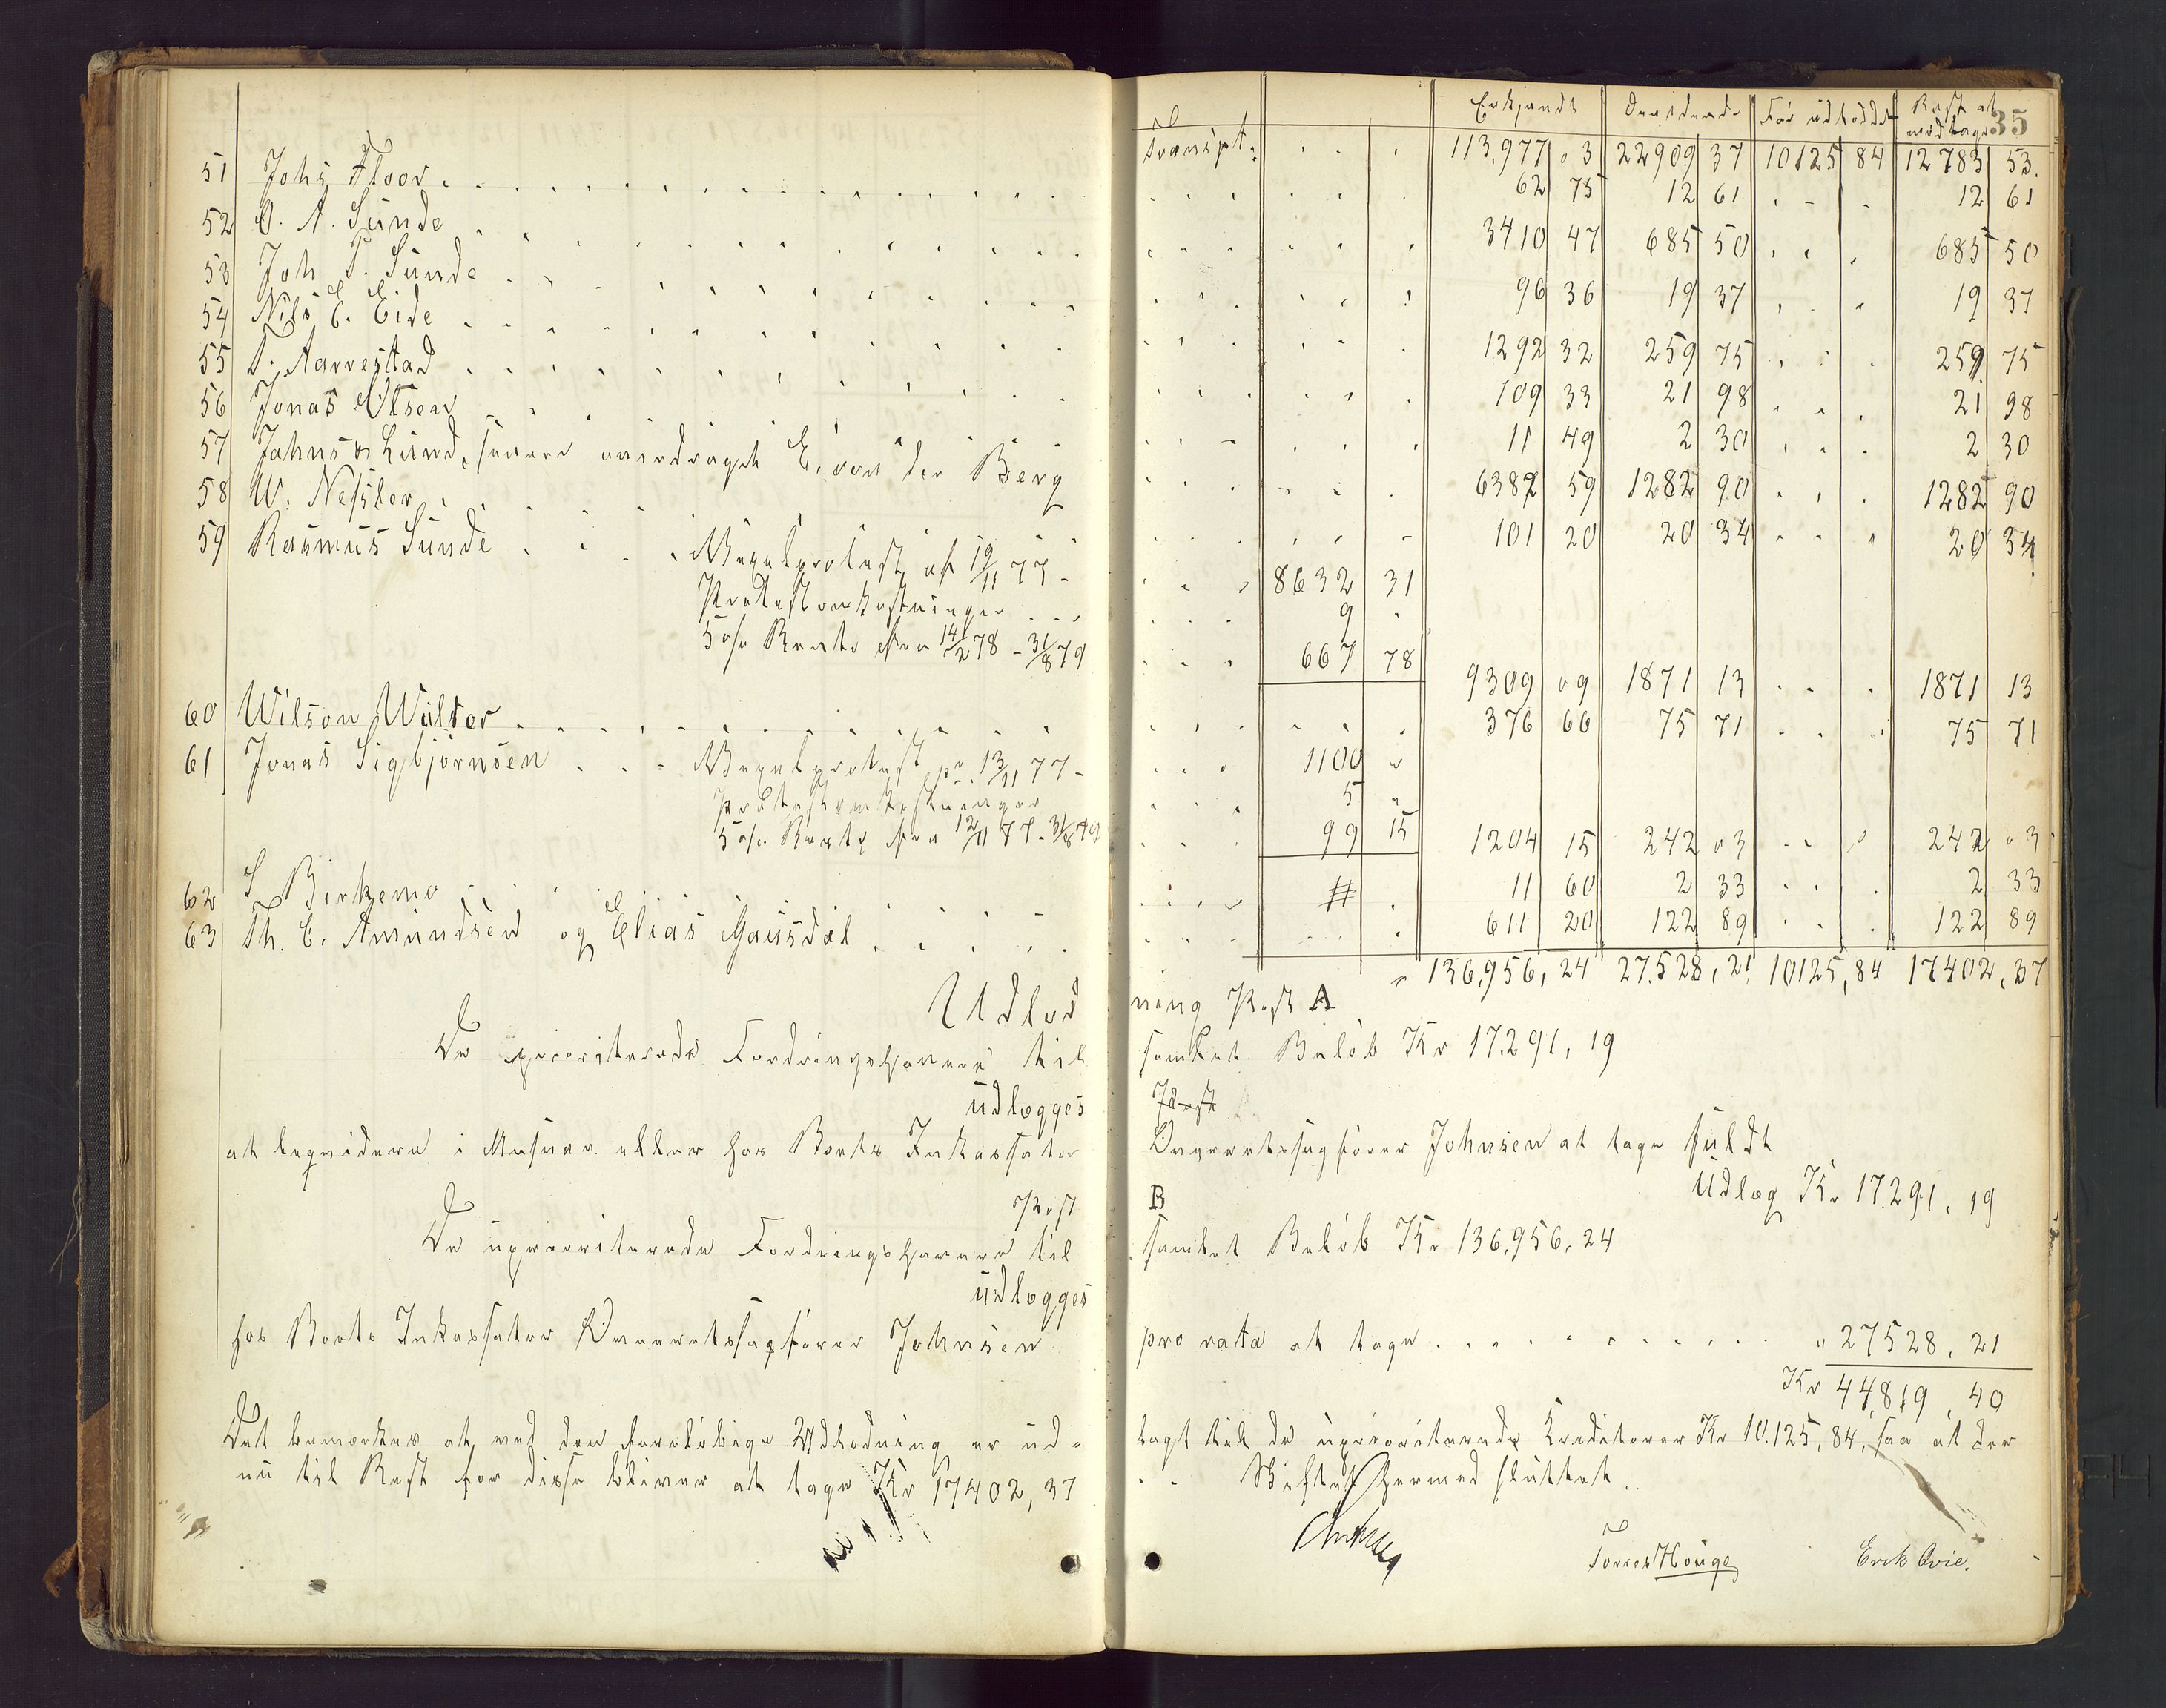 35
Transpt. Erkjendt Dividende Før udloddet Rest at modtage
113.977 03 22909 37 10125 84 12783 53
51 Johs Floor 62 75 12 61 12 61
52 O. A. Sunde 3410 47 685 50 685 50
53 Joh T. Sunde 96 36 19 37 19 37
54 Nils E. Eide 1292 32 259 75 259 75
55 T. Aarrestad 109 33 21 98 21 98
56 Jonas Olsen 11 49 2 30 2 30
57 Jahns & Lund, senere overdraget E. von der Berg 6382 59 1282 90 1282 90
58 W. Nessler 101 20 20 34 20 34
59 Rasmus Sunde Vexelprotest af 19/11 77 - 8632 31
Protestomkostninger 9
5 o/o Rente fra 14/2 78 - 31/8 79 667 78 9309 09 1871 13 1871 13
60 Wilson Walter 376 66 75 71 75 71
61 Jonas Sigbjørnsen Vexelprotest pr. 13/11 77 - 1100 "
Protestomkostninger 5 "
5 o/o Rente fra 12/11 77 - 31/8 79 99 15 1204 15 242 03 242 03
62 S Birkemo # 11 60 2 33 2 33
63 Th. C. Amundsen og Elias Gausdal 611 20 122 89 122 89
136,956, 24 27.528, 21 10125, 84 17402, 37
Udlodning Post A
De prioriterede Fordringshavere til samlet Beløb Kr 17.291, 19
udlægges
at leqvidere i Masven eller hos Boets Inkassator Overretssagfører Johnsen at tage fuldt
Udlæg Kr 17.291, 19
Post B
De uprioriterede Fordringshavere til samlet Beløb Kr 136,956, 24
udlægges
hos Boets Inkassator Overretssagfører Johnsen pro rata at tage " 27528, 21
Kr 44,819, 40
Det bemærkes at ved den foreløbige Udlodning er udlagt til de uprioriterede Kreditorer Kr 10.125, 84, saa at der
nu til Rest for disse bliver at tage Kr 17402, 37 - - Skiftet hermed sluttet.
Torres Houge Erik Qvie.